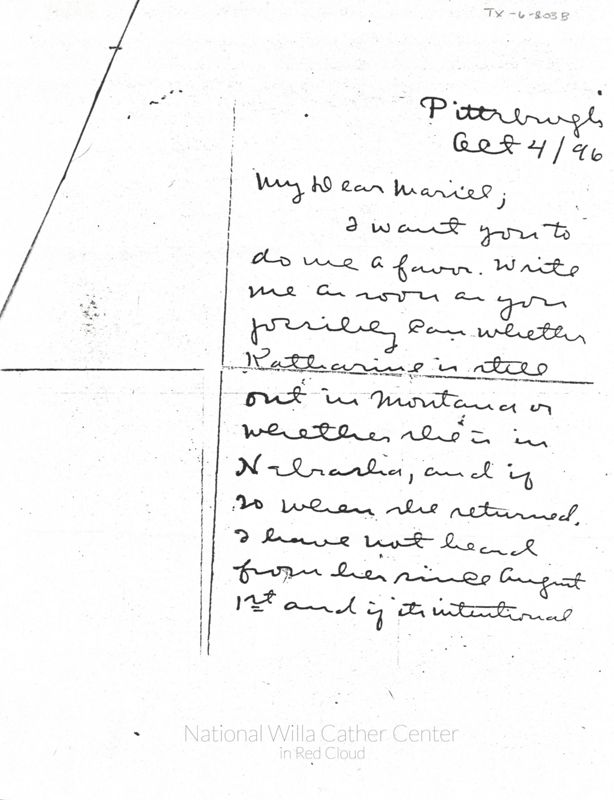 TX-6-803B
Pittsburgh
Oct 4/96
My Dear Mariel;
I want you to
do me a favor. Write
me as soon as you
possibly can whether
Katharine is still
out in Montana or
whether she is in
Nebraska, and if
so when she returned.
I have not heard
from her since August
1st and if its intentional
National Willa Cather Center
in Red Cloud